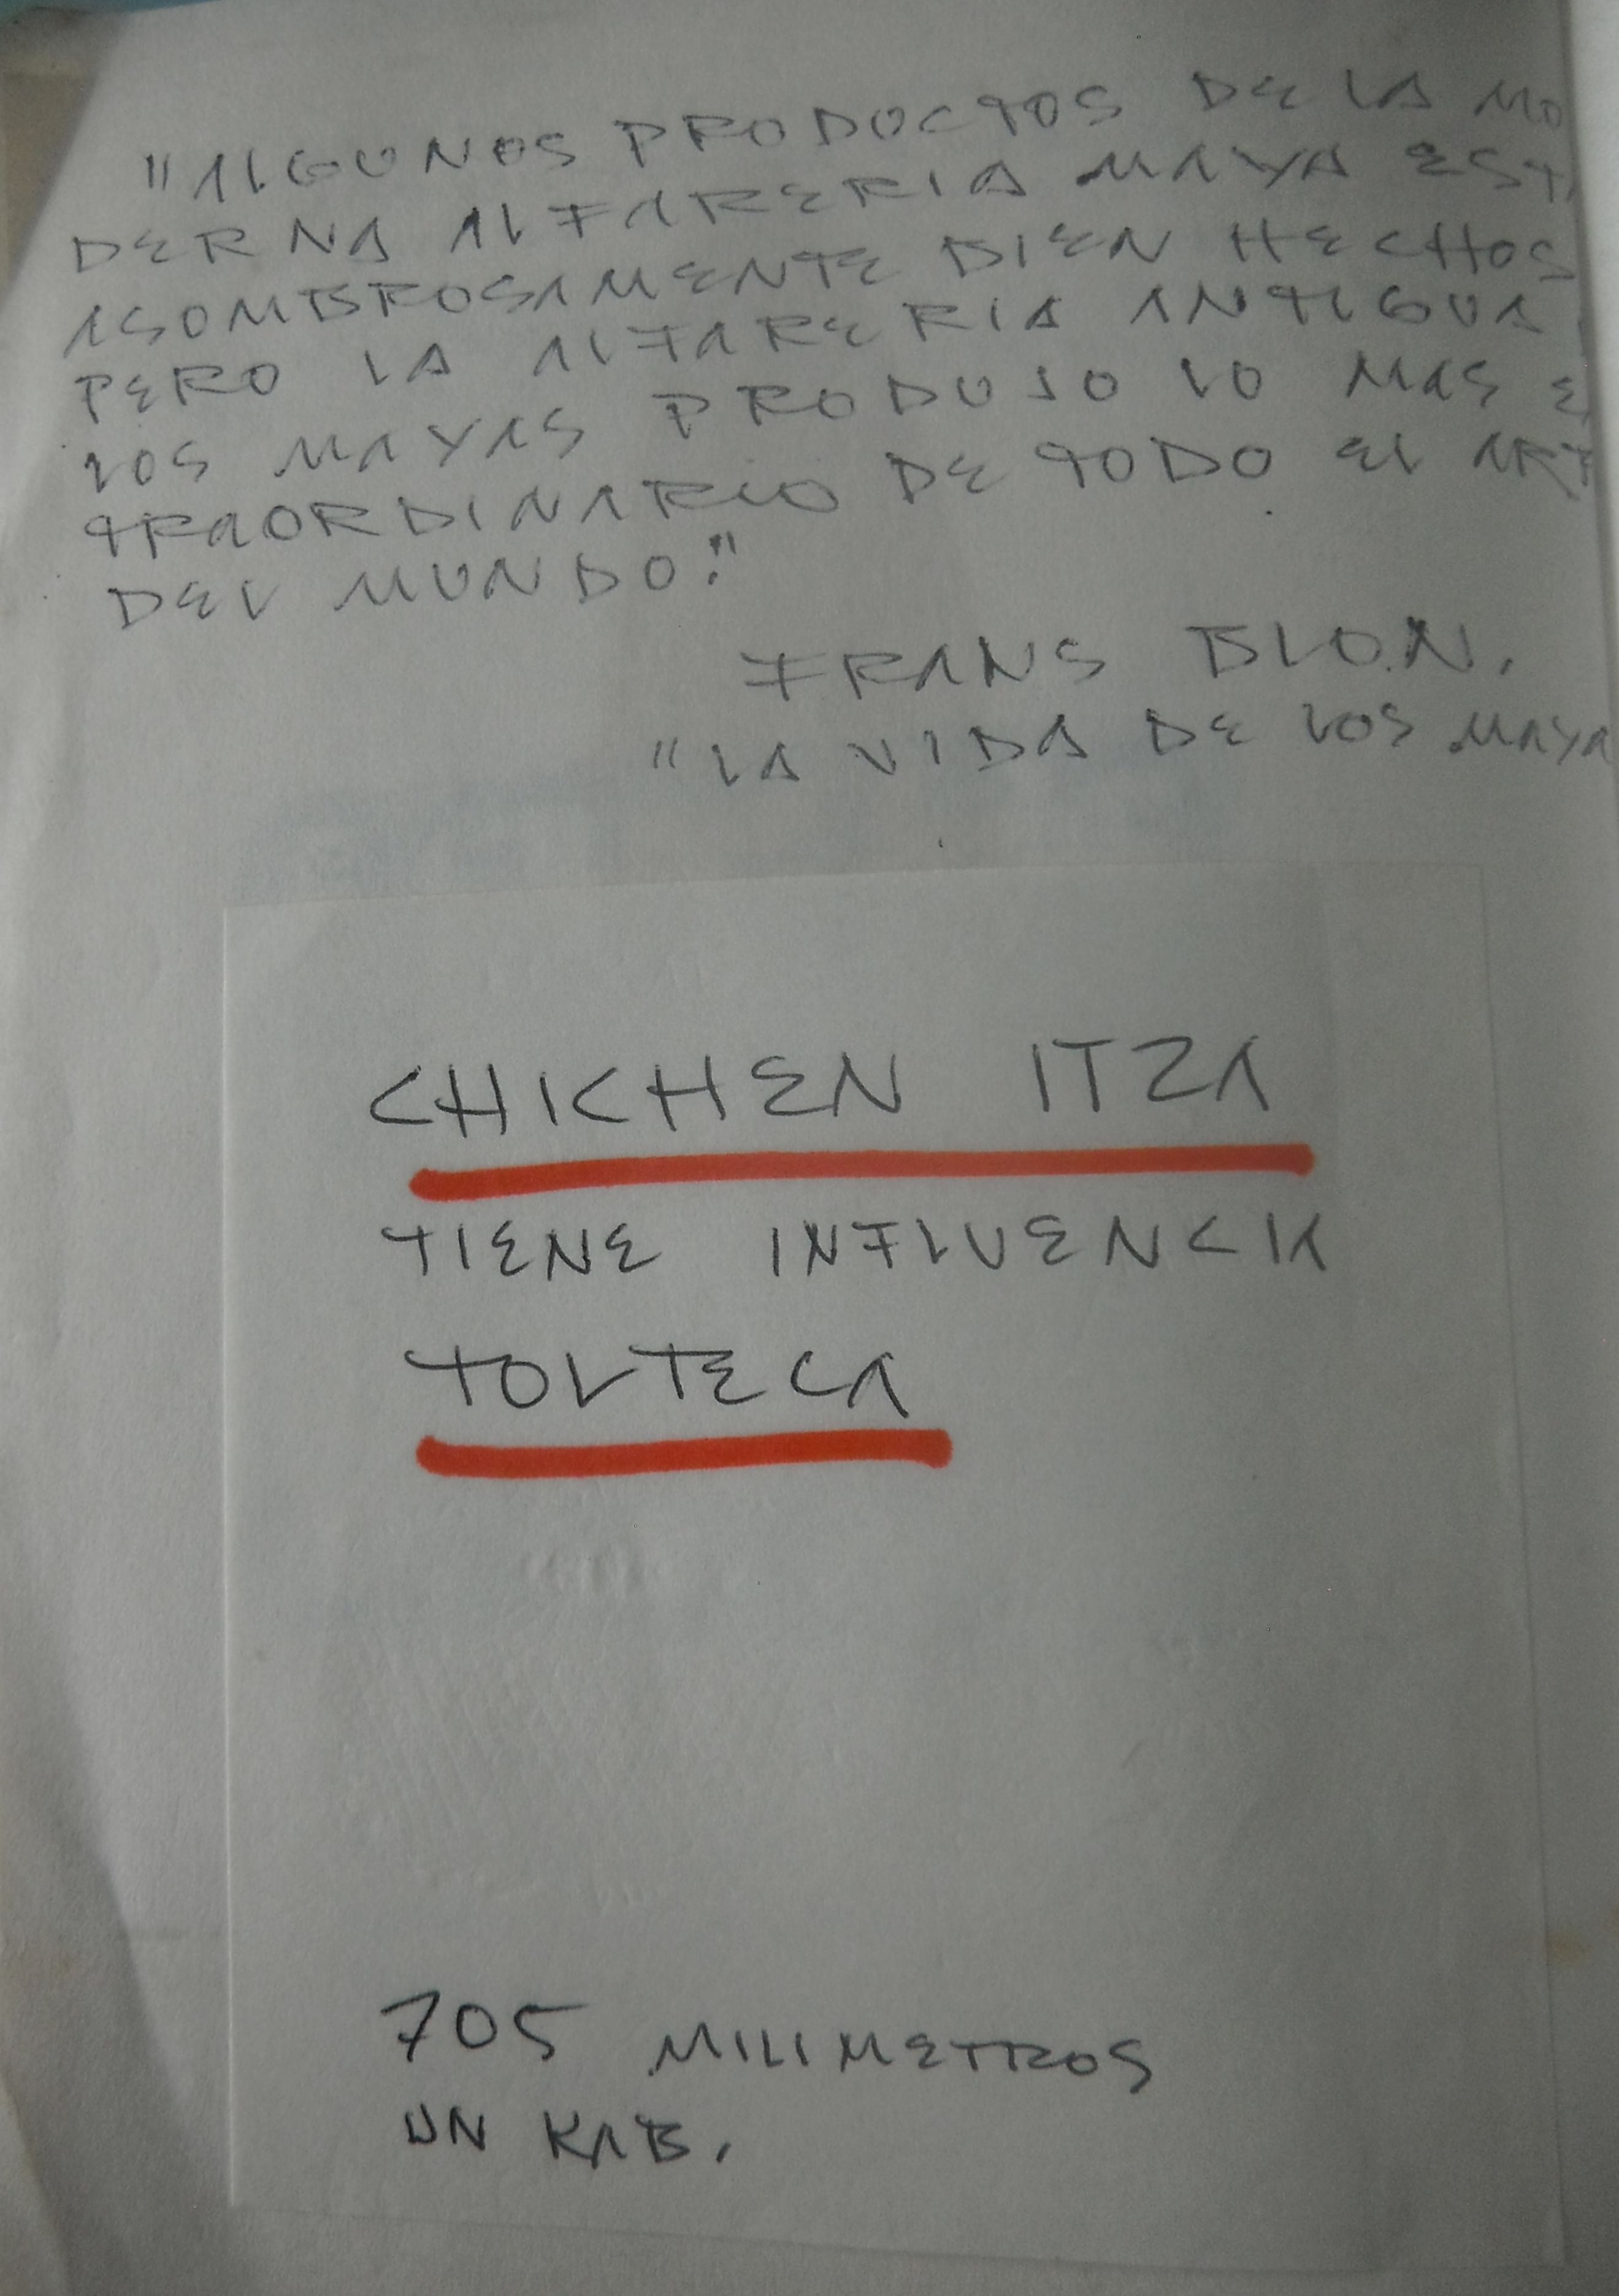 "ALGUNOS PRODOCTOS DE LA MO
DERNA ALFARERIA MAYA EST
ASOMBROSAMENTE BIEN HECHOS
PERO LA ALFARERIA ANTIGUA
LOS MAYAS PRODUJO LO MAS E
TRAORDINARIO DE TODO EL ART
DEL MUNDO."
FRANS BLON.
"LA VIDA DE LOS MAYA
CHICHEN ITZA
TIENE INFLUENCIA
TOLTECA
705 MILIMETROS
UN KAB.